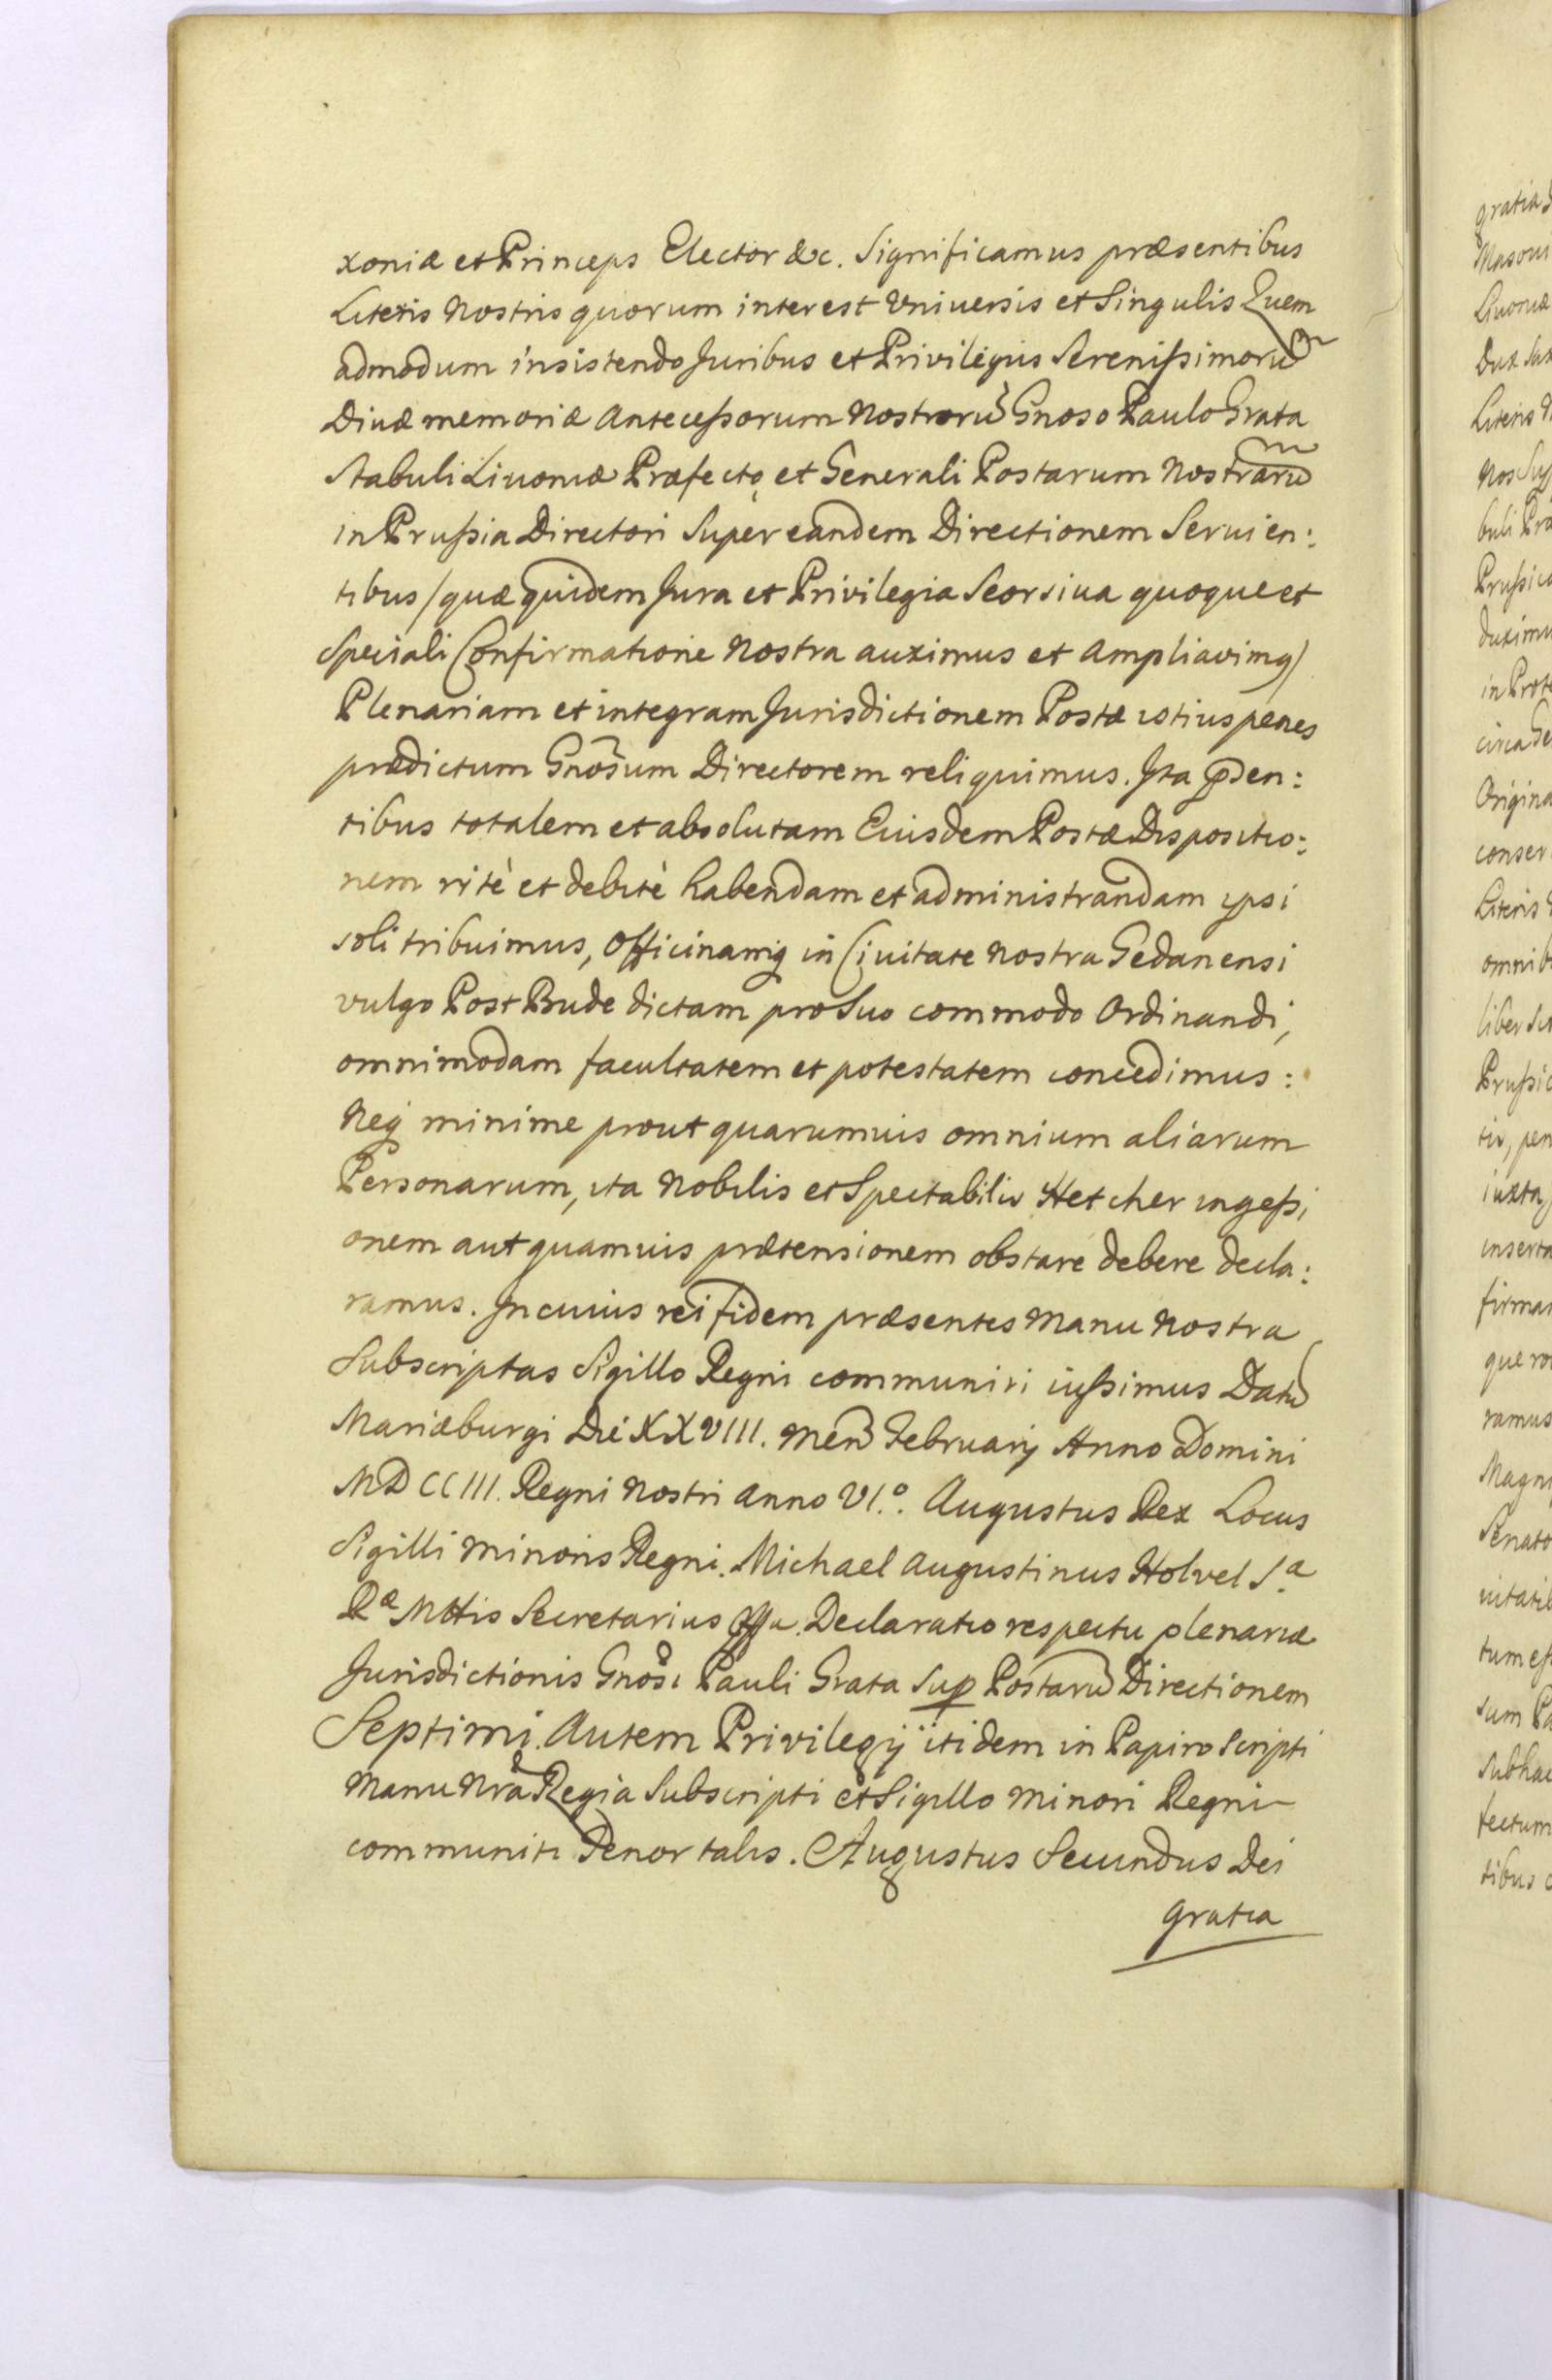 xoniæ et Princeps Elector &c. Significamus præsentibus
Literis Nostris quorum interest Vniuersis et Singulis Quem
admodum insistendo Juribus et Privilegijs Serenissimorũ
Diuæ memoriæ Antecessorum Nostrorũ Gnoso Paulo Grata
Stabuli Liuoniæ Præfecto, et Generali Postarum Nostrarũ
in Prussia Directori Super eandem Directionem Seruien:
tibus /quæ quidem Jura et Privilegia Seorsiua quoque et
Speciali Confirmatione Nostra auximus et Ampliavimq/
Plenariam et integram Jurisdictionem Postæ istius penes
prædictum Gnosum Directorem reliquimus. Ita p̃den:
tibus totalem et absolutam Euisdem Postæ Dispositio:
nem ritè et debitè habendam et administrandam ipsi
soli tribuimus, Officinamq in Ciuitate Nostra Gedanensi
vulgo Post Bude dictam pro Suo commodo Ordinandi,
omnimodam facultatem et potestatem concedimus:
Neq minime prout quarumuis omnium aliarum
Personarum, ita Nobilis et Spectabilis Hetcher ingessi
onem aut quamuis prætensionem obstare debere decla:
ramus. In cuius rei fidem præsentes Manu Nostra
Subscriptas Sigillo Regni communiri iussimus Datũ
Mariæburgi Die XXVIII. Men Februarij Anno Domini
MDCCIII. Regni Nostri Anno VI.º. Augustus Rex Locus
Sigilli Minoris Regni. Michael Augustinus Holvel S.ª
Rª Mttis Secretarius Declaratio respectu plenariæ
Jurisdictionis Gnosi Pauli Grata Sup Postarũ Directionem
Septimi. Autem Privilegij itidem in Papiro Scripti
Manu Nrã Regia Subscripti et Sigillo Minori Regni
communiti Tenor talis. Augustus Secundus Dei
gratia